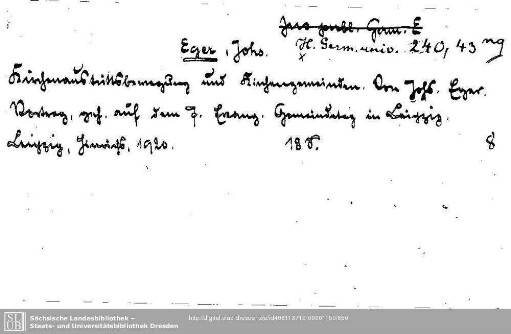 Jus publ. Germ. E
Eger, Johs. H. Germ. univ. 240, 43 ng
Kirchenaustrittsbewegung und Kirchengemeinden. Von Johs. Eger.
Vortrag, geh. auf dem 7. Evang. Gemeindetag in Leipzig.
Leipzig, Hinrichs, 1920. 18 S. 8
SLUB
Sächsische Landesbibliothek –
Staats- und Universitätsbibliothek Dresden